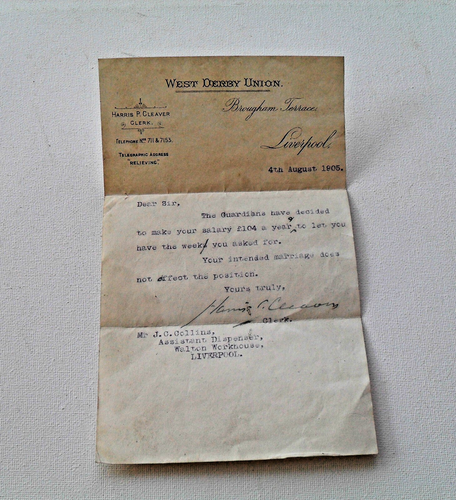 WEST DERBY UNION.
HARRIS P. CLEAVER
CLERK.
TELEPHONE Nos 711 & 7153.
TELEGRAPHIC ADDRESS
"RELIEVING."
Brougham Terrace.
Liverpool,
4th August 1905.
Dear Sir,
The Guardians have decided
to make your salary £104 a year & to let you
have the week you asked for.
Your intended marriage does
not affect the position.
Yours truly,
Harris P. Cleaver
Clerk.
Mr J.C. Collins,
Assistant Dispenser,
Walton Workhouse,
LIVERPOOL.